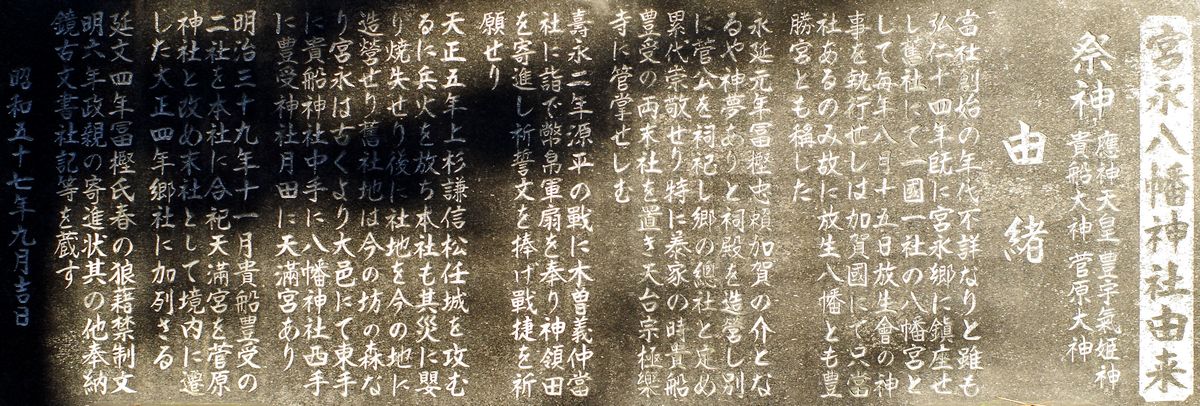 宮永八幡神社由来
祭神
應神天皇 豊宇氣姫神
貴船大神 菅原大神
由緒
當社創始の年代不詳なりと雖も
弘仁十四年既に宮永郷に鎮座せ
し舊社にて一國一社の八幡宮と
して毎年八月十五日放生會の神
事を執行せしは加賀國にて只當
社あるのみ故に放生八幡とも豊
勝宮とも稱した
永延元年冨樫忠頼加賀の介とな
るや神夢ありと祠殿を造営し別
に菅公を祠祀し郷の總社と定め
累代崇敬せり特に泰家の時貴船
豊受の両末社を置き天台宗極樂
寺に管掌せしむ
壽永二年源平の戰に木曽義仲當
社に詣で幣帛軍扇を奉り神領田
を寄進し祈誓文を捧げ戰捷を祈
願せり
天正五年上杉謙信松任城を攻む
るに兵火を放ち本社も其災に嬰
り焼失せり後に社地を今の地に
造營せり舊社地は今の坊の森な
り宮永は古くより大邑にて東手
に貴船神社中手に八幡神社西手
に豊受神社月田に天滿宮あり
明治三十九年十一月貴船豊受の
二社を本社に合祀天滿宮を菅原
神社と改め末社として境内に遷
した大正四年郷社に加列さる
延文四年冨樫氏春の狼藉禁制文
明六年政親の寄進状其の他奉納
鏡古文書社記等を蔵す
昭和五十七年九月吉日